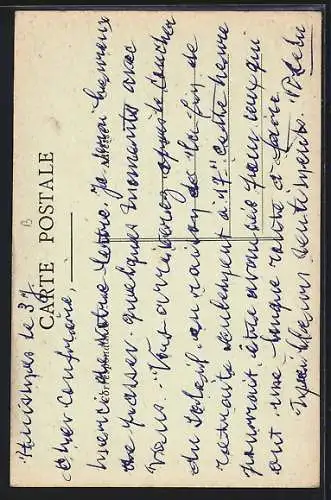 CARTE POSTALE
le 37
Cher Confrère,
Merci de votre lettre. Je serai heureux
de passer quelques moments avec
vous. Vous arriverez après le coucher
du soleil, en raison de
retraite seulement à 17h cette heure
pourrait être avancée pour ceux qui
ont une longue route à faire.
sentiments.